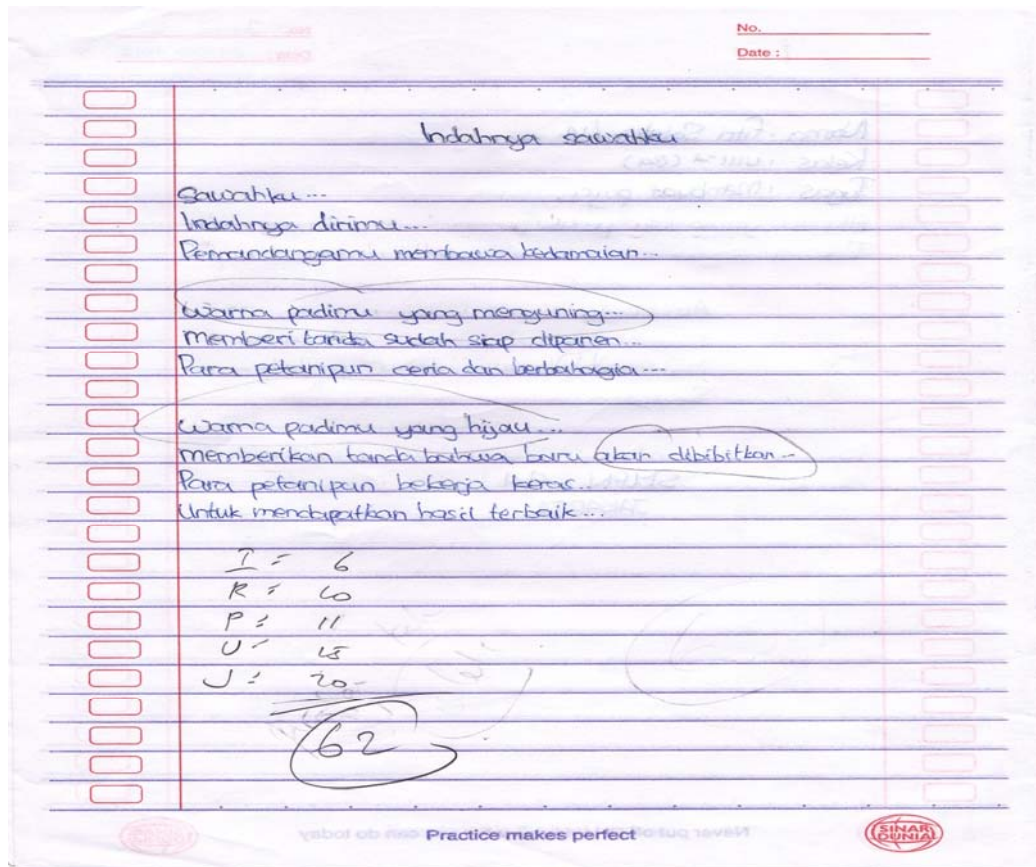 No.
Date :
Indahnya sawahku
Sawahku...
Indahnya dirimu...
Pemandanganmu membawa kedamaian...
Warna padimu yang menguning...
Memberi tanda sudah siap dipanen...
Para petanipun ceria dan berbahagia...
Warna padimu yang hijau...
memberikan tanda bahwa baru akan dibibitkan-
Para petanipun bekerja keras...
Untuk mendapatkan hasil terbaik...
I = 6
R = 10
P = 11
U = 15
J = 20
62
Practice makes perfect
SINAR DUNIA